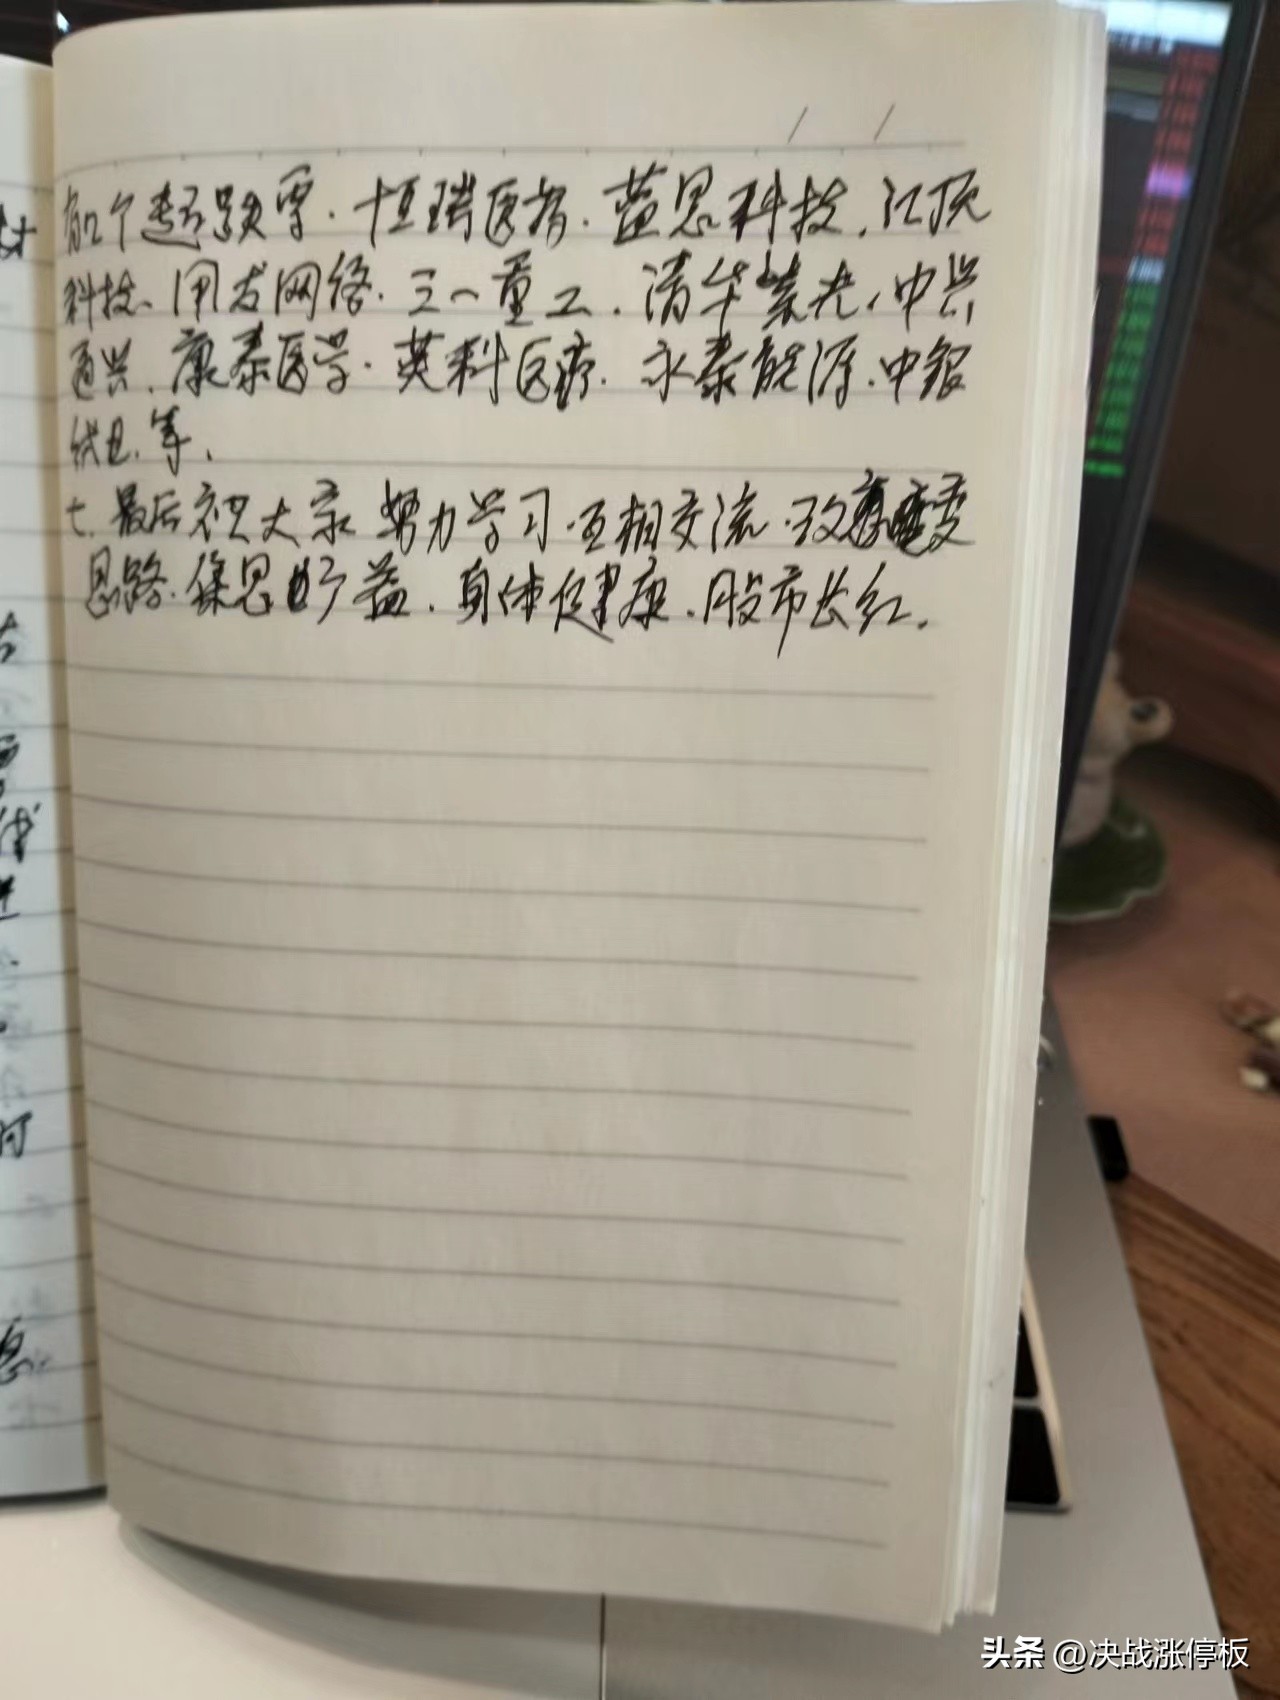 有几个超跌票.恒瑞医药.蓝思科技.汇顶
科技、用友网络.三一重工.清华紫光、中兴
通兴.康泰医学.英科医疗.永泰能源.中银
绒业.等.
七.最后祝大家努力学习.互相交流.改变
思路.集思广益.身体健康.股市长红.
头条 @决战涨停板